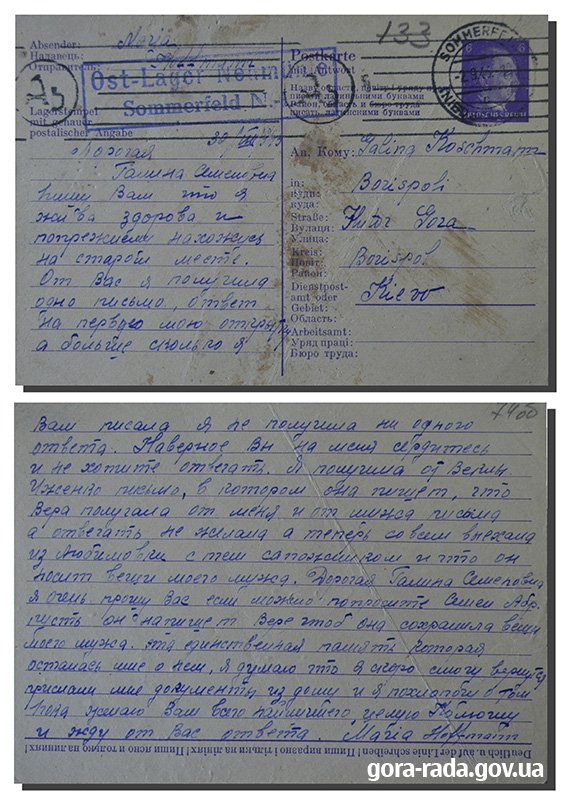 133
Absender:
Надавець:
Отправитель:
Maria
Hoffmann
Ost-Lager
Sommerfeld N.-
Lagerstempel
mit genauer
postalischer Angabe
Postkarte
mit Antwort
SOMMERFELD
6
An, Кому: Galina Koschmann
in:
куди:
куда:
Borispoli
Straße:
Вулиця:
Улица:
Hutor Gora
Kreis:
Повіт:
Район:
Borispol
Dienstpost-
amt oder
Gebiet:
Область:
Kiew
Arbeitsamt:
Уряд праці:
Бюро труда:
Дорогая
Галина Семеновна
пишу Вам что я
жива здорова и
попрежнему нахожусь
на старом месте.
От Вас я получила
одно письмо, ответ
на первую мою открытку
а больше сколько я
7400
Вам писала я не получила ни одного
ответа. Наверное Вы на меня сердитесь
и не хотите отвечать. Я получила от
письмо, в котором она пишет, что
Вера получала от меня и от мужа письма
а отвечать не желала а теперь совсем выехала
из Любимовки с тем сапожником и что он
носит вещи моего мужа. Дорогая Галина Семеновна
я очень прошу Вас если можно попросите Семен Абр.
пусть он напишет Вере чтоб она сохранила вещи
моего мужа. эта единственная память которая
осталась мне о нем, я думаю что я скоро смогу вернутся
прислали мне документы из дому и я похлопочу о том
пока желаю Вам всего наилучшего, целую
и жду от Вас ответа. Maria Hoffmann
Deutlich u. auf der Linie schreiben! Пиши виразно і тільки на лініях! Пиши ясно и только на линиях!
gora-rada.gov.ua